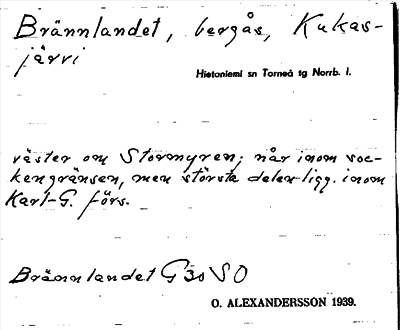 Brännlandet, bergås, Kukas-
järvi
Hietaniemi sn Torneå tg Norrb. l.
väster om Stormyren; når inom soc-
kengränsen, men största delen ligg. inom
Karl-G. förs.
Brännlandet G30 SO
O. ALEXANDERSSON 1939.